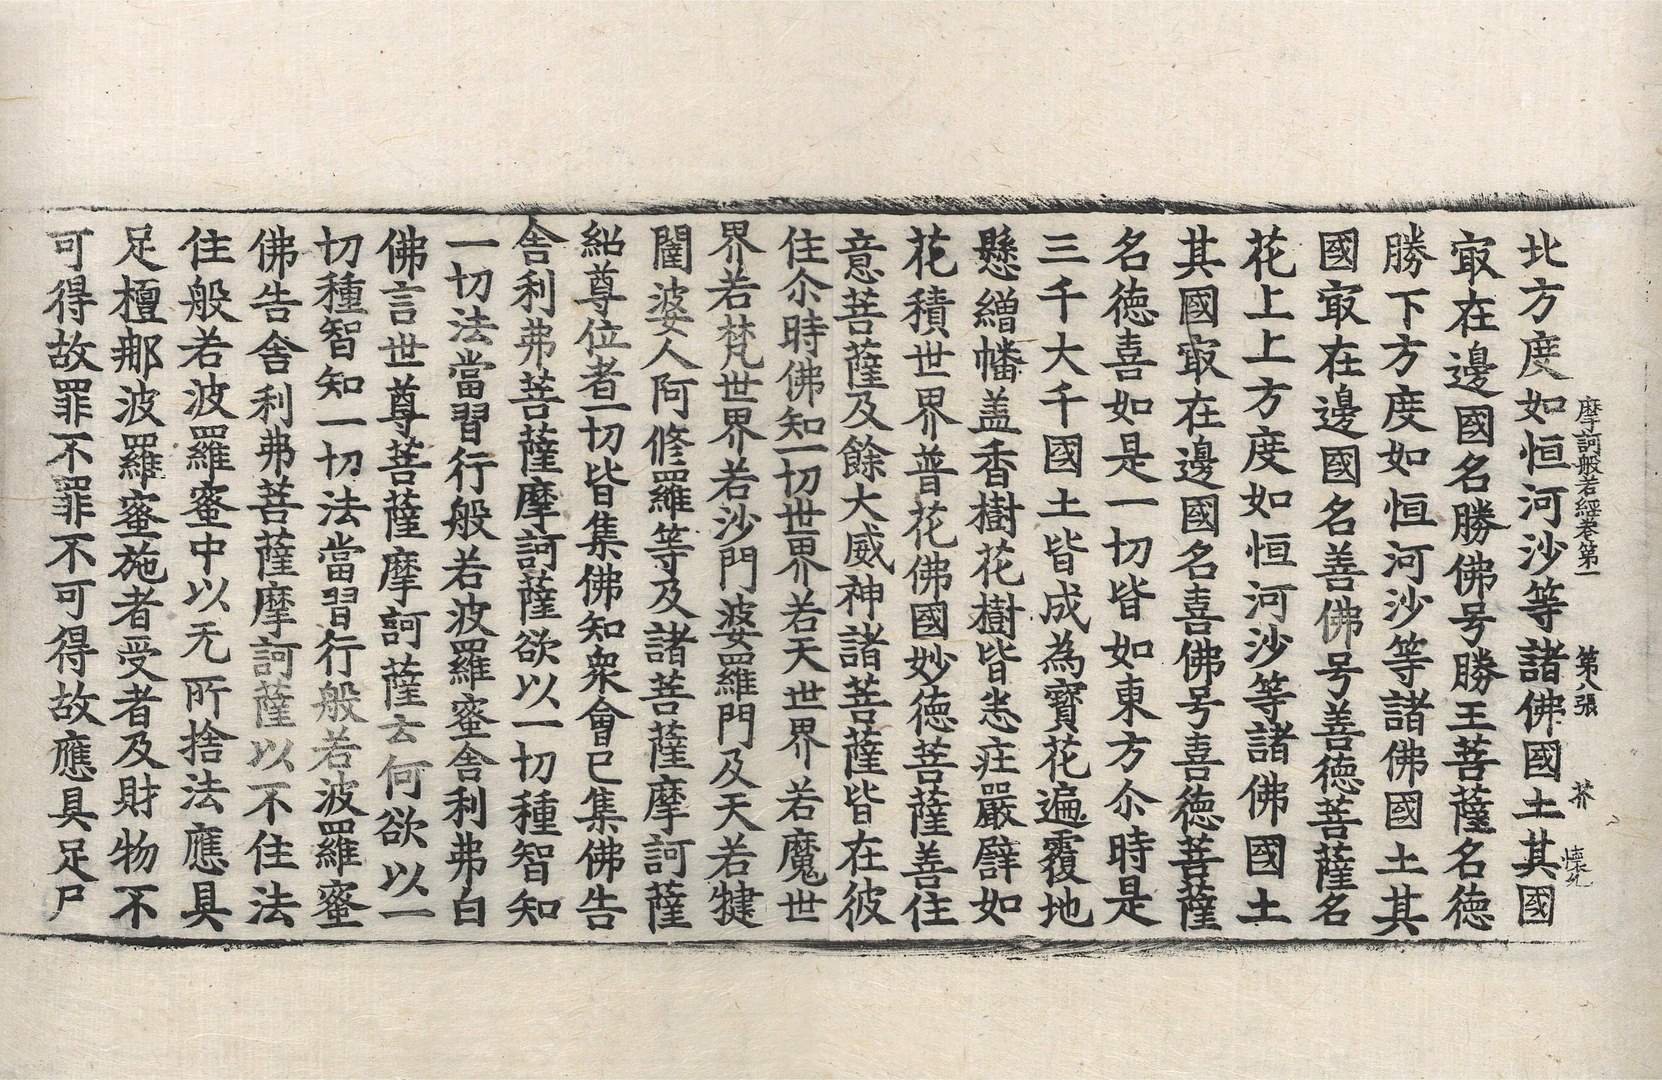 摩訶般若經卷第一 第八張 芥
北方度如恒河沙等諸佛國土其國
㝡在邊國名勝佛号勝王菩薩名德
勝下方度如恒河沙等諸佛國土其
國㝡在邊國名善佛号善德菩薩名
花上上方度如恒河沙等諸佛國土
其國㝡在邊國名喜佛号喜德菩薩
名德喜如是一切皆如東方尒時是
三千大千國土皆成為寶花遍覆地
懸繒幡盖香樹花樹皆悉庄嚴譬如
花積世界普花佛國妙德菩薩善住
意菩薩及餘大威神諸菩薩皆在彼
住尒時佛知一切世界若天世界若魔世
界若梵世界若沙門婆羅門及天若犍
闥婆人阿修羅等及諸菩薩摩訶薩
紹尊位者一切皆集佛知衆會已集佛告
舍利弗菩薩摩訶薩欲以一切種智知
一切法當習行般若波羅蜜舍利弗白
佛言世尊菩薩摩訶薩云何欲以一
切種智知一切法當習行般若波羅蜜
佛告舍利弗菩薩摩訶薩以不住法
住般若波羅蜜中以无所捨法應具
足檀那波羅蜜施者受者及財物不
可得故罪不罪不可得故應具足尸